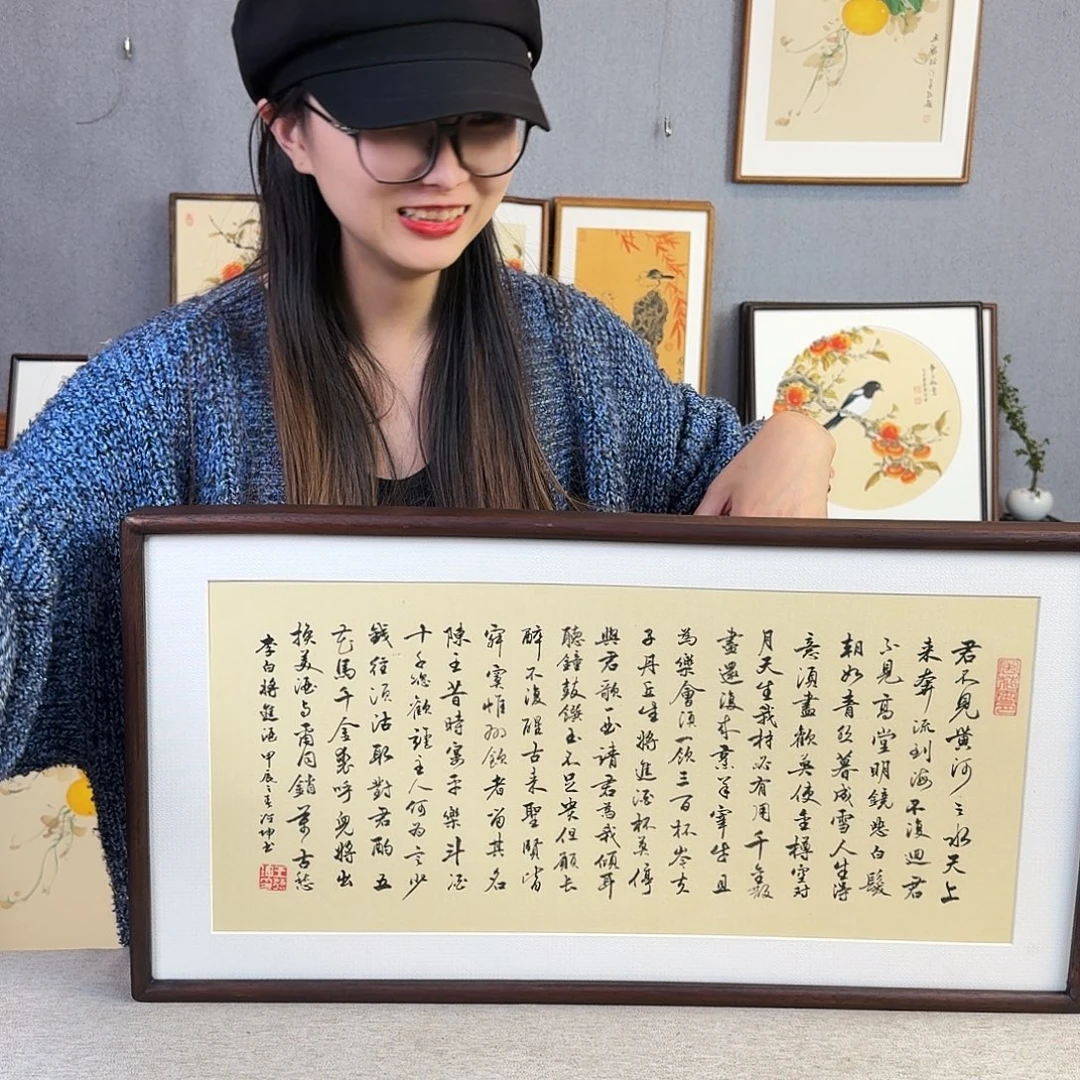 君不見黃河之水天上
来奔流到海不復迴君
不見高堂明鏡悲白髮
朝如青丝暮成雪人生得
意須盡歡莫使金樽空對
月天生我材必有用千金散
盡還復来烹羊宰牛且
為樂會須一飲三百杯岑夫
子丹丘生將進酒杯莫停
與君歌一曲請君為我傾耳
聽鐘鼓饌玉不足貴但願长
醉不復醒古来聖賢皆
寂寞惟有飲者留其名
陳王昔時宴平樂斗酒
十千恣歡謔主人何為言少
錢徑須沽取對君酌五
花馬千金裘呼兒將出
換美酒与爾同銷萬古愁
李白將進酒甲辰之春坤書